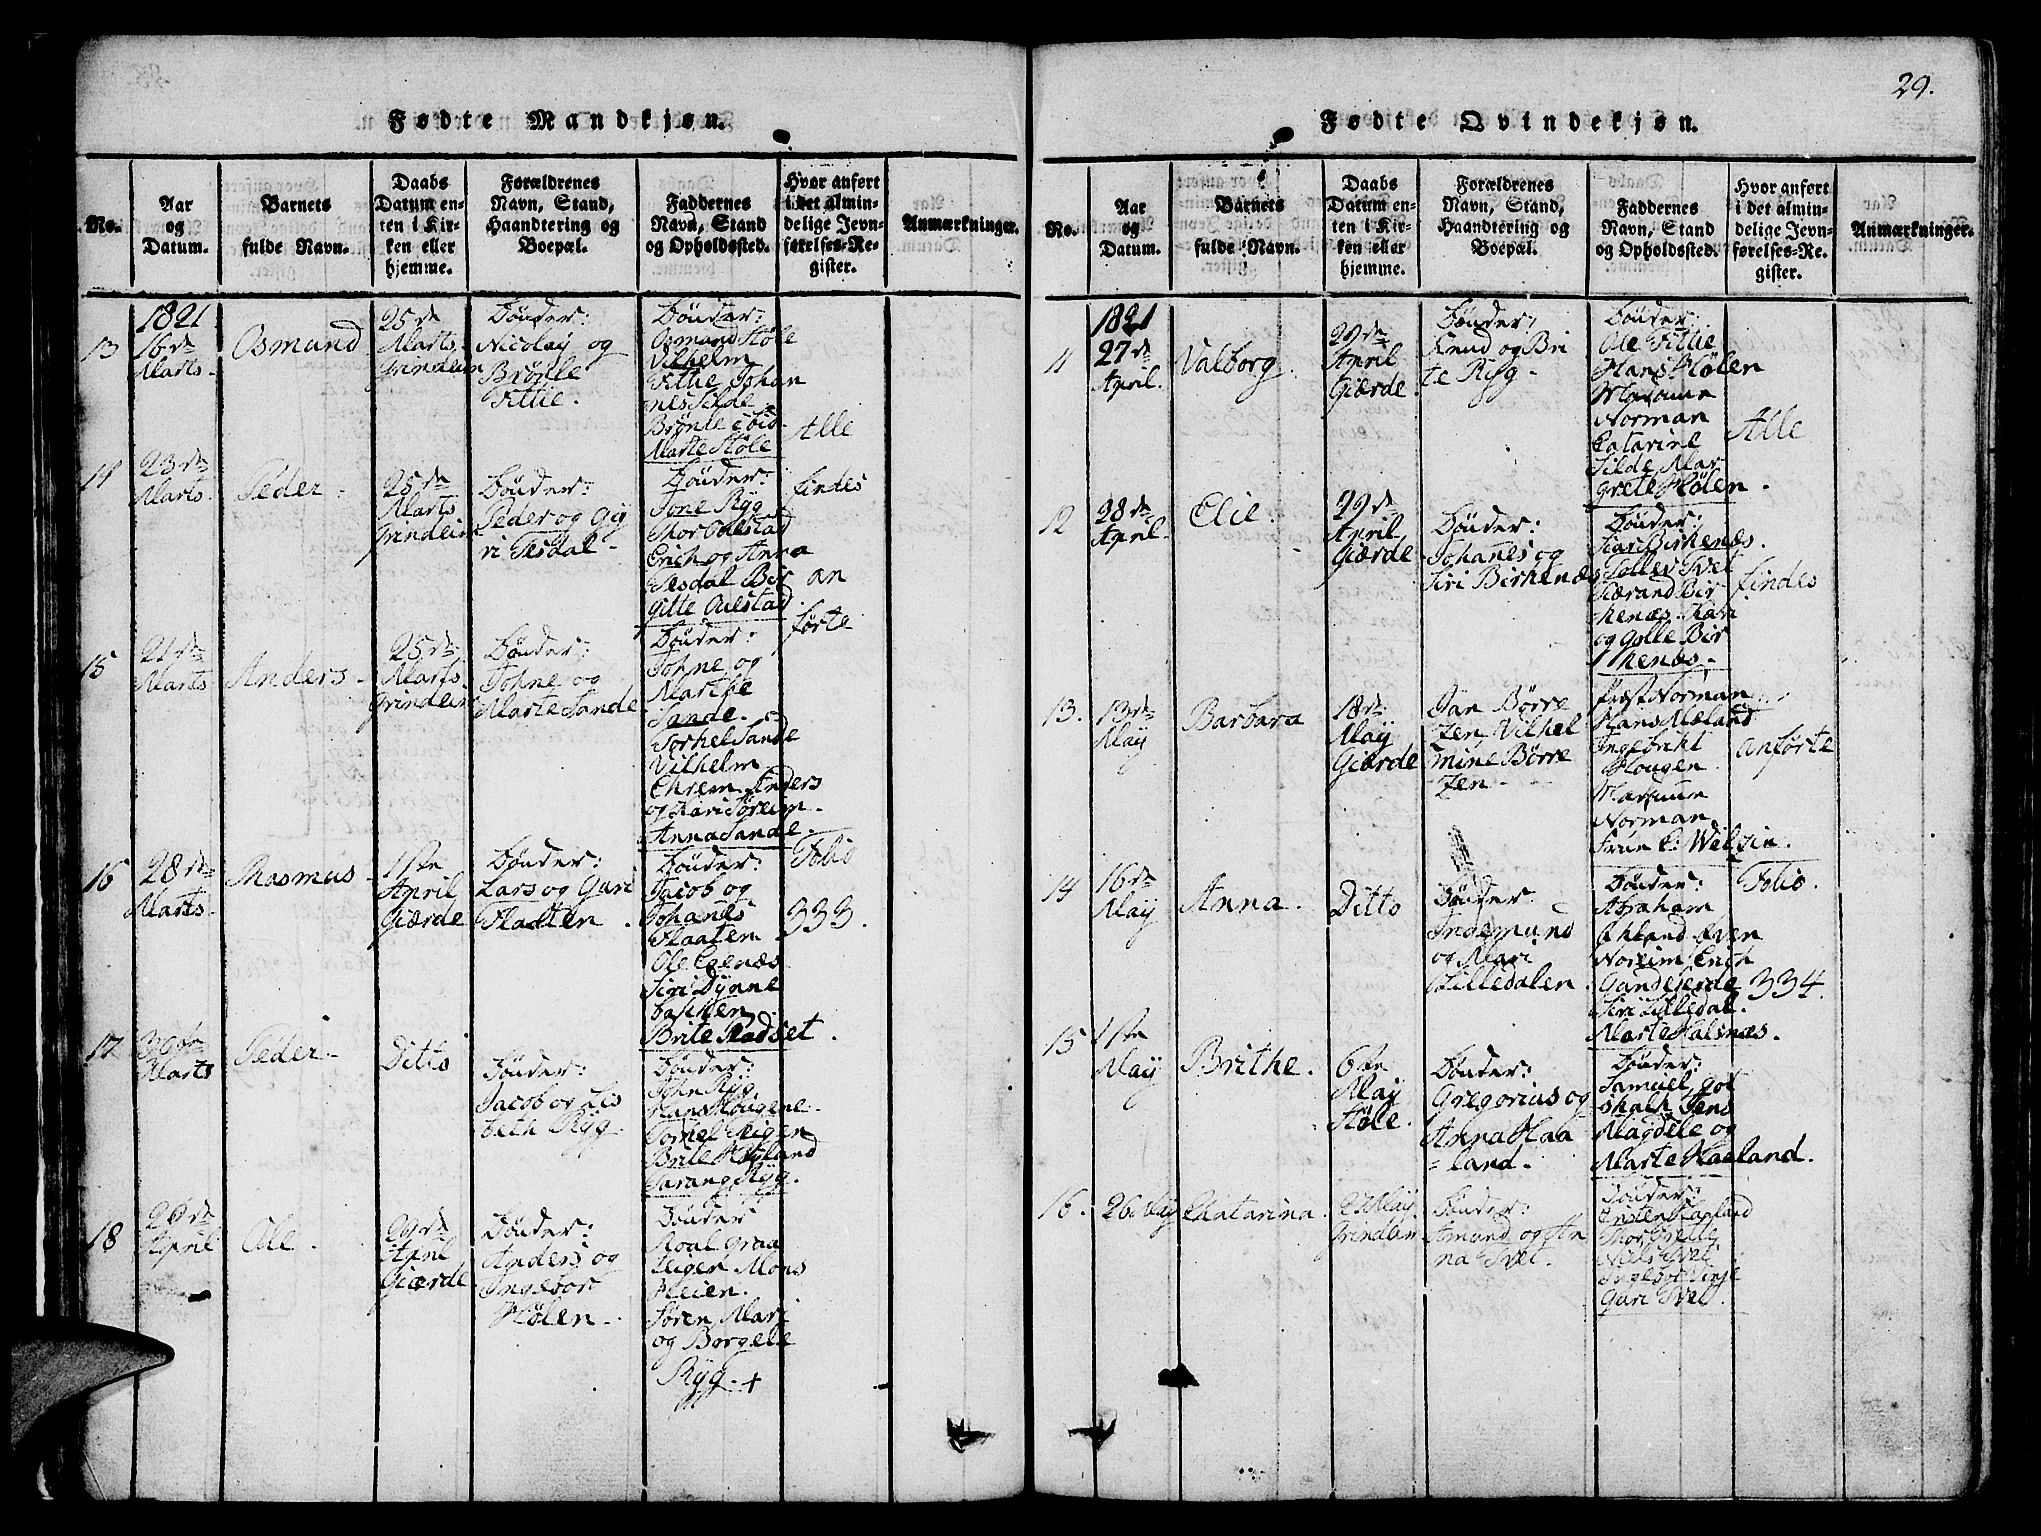 29.
Fødte Mandkjøn.
No.
Aar
og
Datum.
Barnets
fulde Navn.
Daabs
Datum en-
ten i Kir-
ken eller
hjemme.
Forældrenes
Navn, Stand,
Haandtering og
Boepæl.
Faddernes
Navn, Stand
og Opholdssted.
Hvor anført
i det almin-
delige Jevn-
førelses-Re-
gister.
Anmærkninger.
1821
13
16de
Marts.
Osmund
25de
Marts.
Grindeim
Bønder:
Nicolay og
Brønle
Vittie.
Bønder:
Osmund Støle
Vilhelm
Vittie Johan
nes Silde
Brønle ibid.
Marte Støle
14
23de
Marts.
Peder.
25de
Marts
Grindeim
Bønder:
Peder og Gy
ri Tesdal.
Bønder:
Tone Ryg
Thor Ouestad
Erich og Anna
Tesdal Bir
gitte Ouestad.
15
21de
Marts
Anders.
25de
Marts.
Grindeim
Bønder:
Johne og
Marte Sande
Bønder:
Johne og
Marthe
Sande.
Torkel Sande
Vilhelm
Ehrem. Anders
og Kari Søreim.
Anna Sande.
16
28de
Marts.
Rasmus
1ste
April
Giærde
Bønder:
Lars og Guri
Flaaten.
Bønder:
Jacob og
Johanes
Flaaten
Ole Egenæs
Siri Dynne
backen.
Brite Rødset.
17
30te
Marts
Peder.
Ditto
Bønder:
Jacob og Lis
beth Ryg.
Bønder:
John Ryg
Hans Hougene.
Torkel Teigen
Brite Høyland
Ryg.
18
26de
April
Ole.
29de
April
Giærde
Bønder:
Anders og
Ingebor
Hølen.
Bønder
Roal Graa
teigen Mons
Heien.
Søren Mari
og Borgele
Ryg. +
Alle
findes
an
førte
Folio
333.
Fødte Qvindekjøn.
No.
Aar
og
Datum.
Barnets
fulde Navn.
Daabs
Datum en-
ten i Kir-
ken eller
hjemme.
Forældrenes
Navn, Stand,
Haandtering og
Boepæl.
Faddernes
Navn, Stand
og Opholdssted.
Hvor anført
i det almin-
delige Jevn-
førelses-Re-
gister.
Anmærkninger.
1821
11
27de
April.
Valborg.
29de
April
Giærde.
Bønder:
Knud og Bri
te Ryg.
Bønder:
Ole Vittie
Hans Hølen
Norman
Catarine
Silde, Mar
grete Hølen.
12
28de
April.
Elie.
29de
April
Giærde
Bønder:
Johanes og
Siri Birkenæs
Bønder:
Birkenæs.
Tollev Tvet
Bir
kenæs. Kari
og Gølle Bir
kenæs.
13.
13de
May
Barbara
18de
May
Giærde
Jan Børre
zen, Vilhel
mine Børre
zen
Norman
Hans Mæland
Ingebrikt
Hougen.
Norman.
Frue C. Welzin.
14
16de
May
Anna.
Ditto
Bønder.
Ingemund
og Mari
Lilledalen.
Bønder:
Abraham
Øhland Even
Noreim Erich
Siri Lilledal.
Marte Halsnæs.
15
1ste
May
Brithe.
6te
May
Støle.
Bønder:
Gregorius og
Anna Haa
land.
Bønder:
Samuel, Got
skalk, Jens
Magdele og
Marte Haaland.
16.
26 May
Chatarina.
27 May
Grindeim
Bønder:
Amund og An
na Tvet.
Bønder:
Niels Tvet
Guri Tvet.
Alle
findes
anførte
Folio.
334.